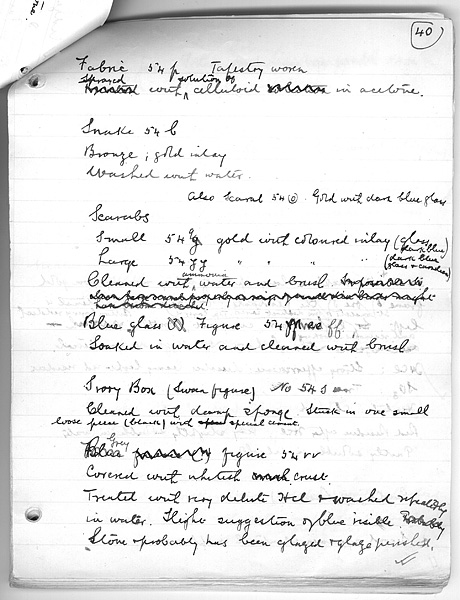 40
Fabric 54 p Tapestry woven
Sprayed with solution of celluloid in acetone.
Snake 54 b
Bronze; gold inlay
Washed with water.
Also Scarab 54 Gold with dark blue glass
Scarabs
Small 54 g gold with coloured inlay (glass dark blue)
Large 54 yy " " " " (dark blue glass &
Cleaned with ammonia water and brush
Blue glass Figure 54 ff
Soaked in water and cleaned with brush
Ivory Box (Swan figure) No 54 s
Cleaned with damp sponge. Stuck in one small
loose piece (black) with special cement.
Grey figure 54 vv
Covered with whitish crust.
Treated with very dilute Hcl & washed repeatedly
in water. Slight suggestion of blue visible. Probably
Stone & probably has been glazed & glaze perished.